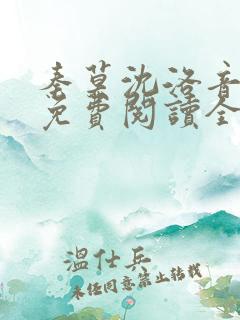 秦墓沈洛音
免費閱讀全
溫仕兵
未经同意禁止转载